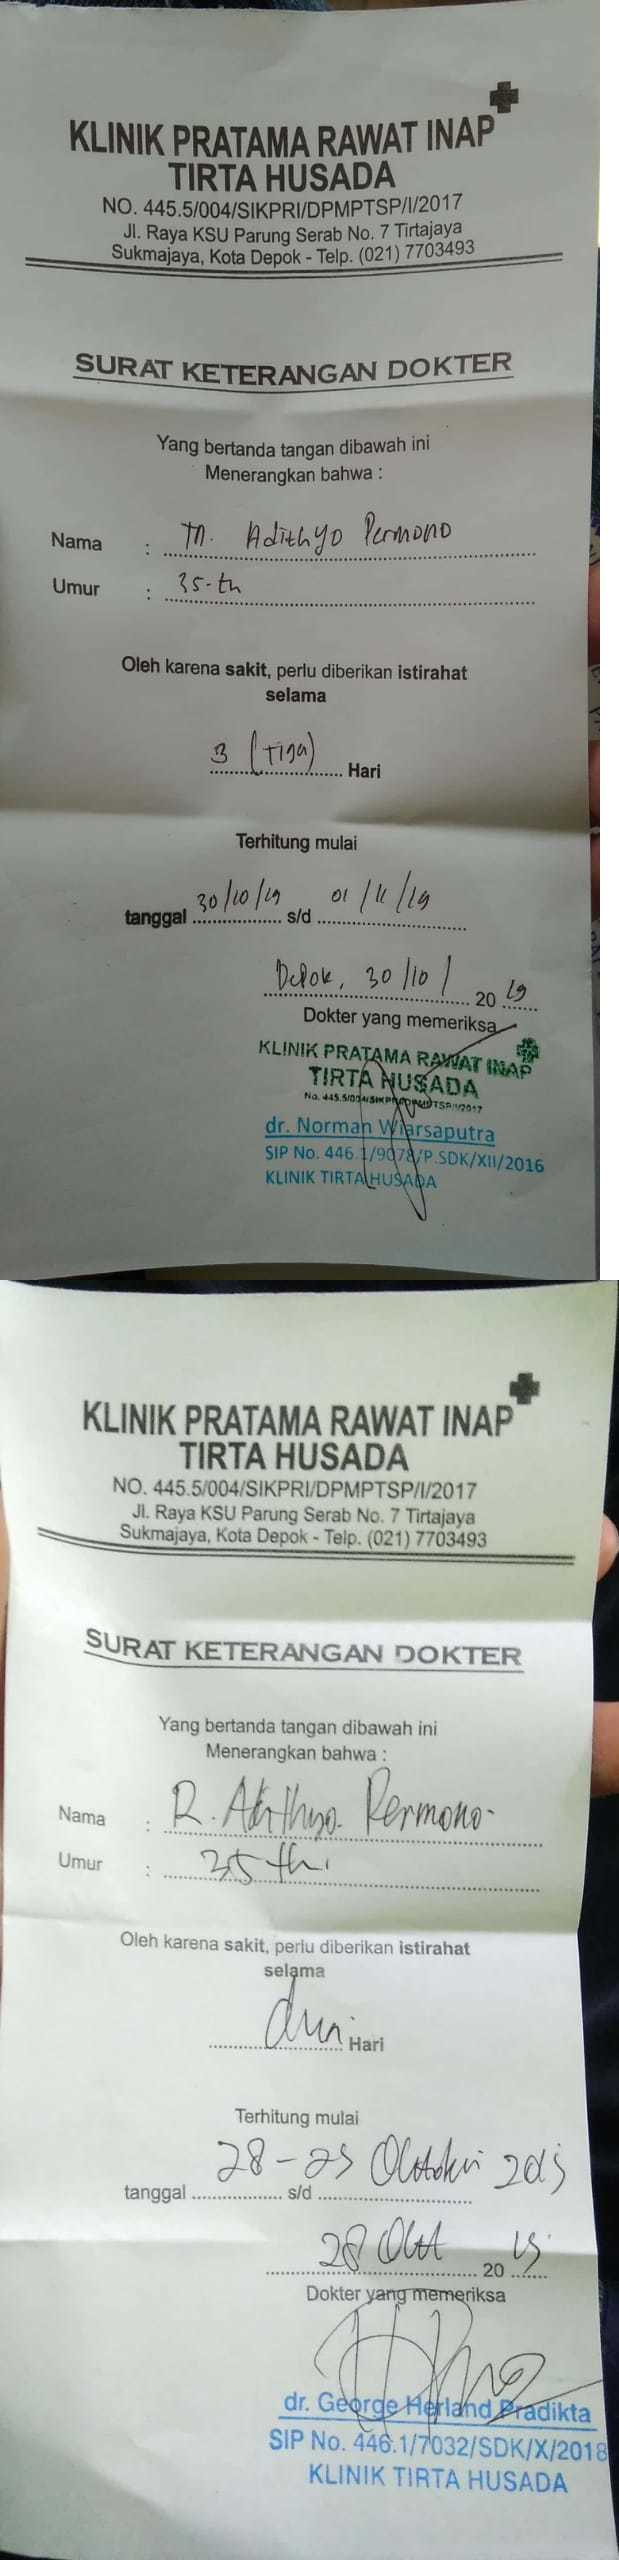 KLINIK PRATAMA RAWAT INAP
TIRTA HUSADA
NO. 445.5/004/SIKPRI/DPMPTSP/I/2017
Jl. Raya KSU Parung Serab No. 7 Tirtajaya
Sukmajaya, Kota Depok - Telp. (021) 7703493
SURAT KETERANGAN DOKTER
Yang bertanda tangan dibawah ini
Menerangkan bahwa :
Nama : Tn. Adithyo Permono
Umur : 35-th
Oleh karena sakit, perlu diberikan istirahat
selama
3 (Tiga) Hari
Terhitung mulai
tanggal 30/10/19 s/d 01/11/19
Depok, 30/10/ 20 19
Dokter yang memeriksa
KLINIK PRATAMA RAWAT INAP
TIRTA HUSADA
No. 445.5/004/SIKPRI/DPMPTSP/I/2017
dr. Norman Wiarsaputra
SIP No. 446.1/9078/P.SDK/XII/2016
KLINIK TIRTA HUSADA
KLINIK PRATAMA RAWAT INAP
TIRTA HUSADA
NO. 445.5/004/SIKPRI/DPMPTSP/I/2017
Jl. Raya KSU Parung Serab No. 7 Tirtajaya
Sukmajaya, Kota Depok - Telp. (021) 7703493
SURAT KETERANGAN DOKTER
Yang bertanda tangan dibawah ini
Menerangkan bahwa :
Nama : R. Adithyo Permono
Umur : 35 th
Oleh karena sakit, perlu diberikan istirahat
selama
dua Hari
Terhitung mulai
tanggal 28 - 29 Oktober 2019 s/d
28 Okt 20 19
Dokter yang memeriksa
dr. George Herland Pradikta
SIP No. 446.1/7032/SDK/X/2018
KLINIK TIRTA HUSADA